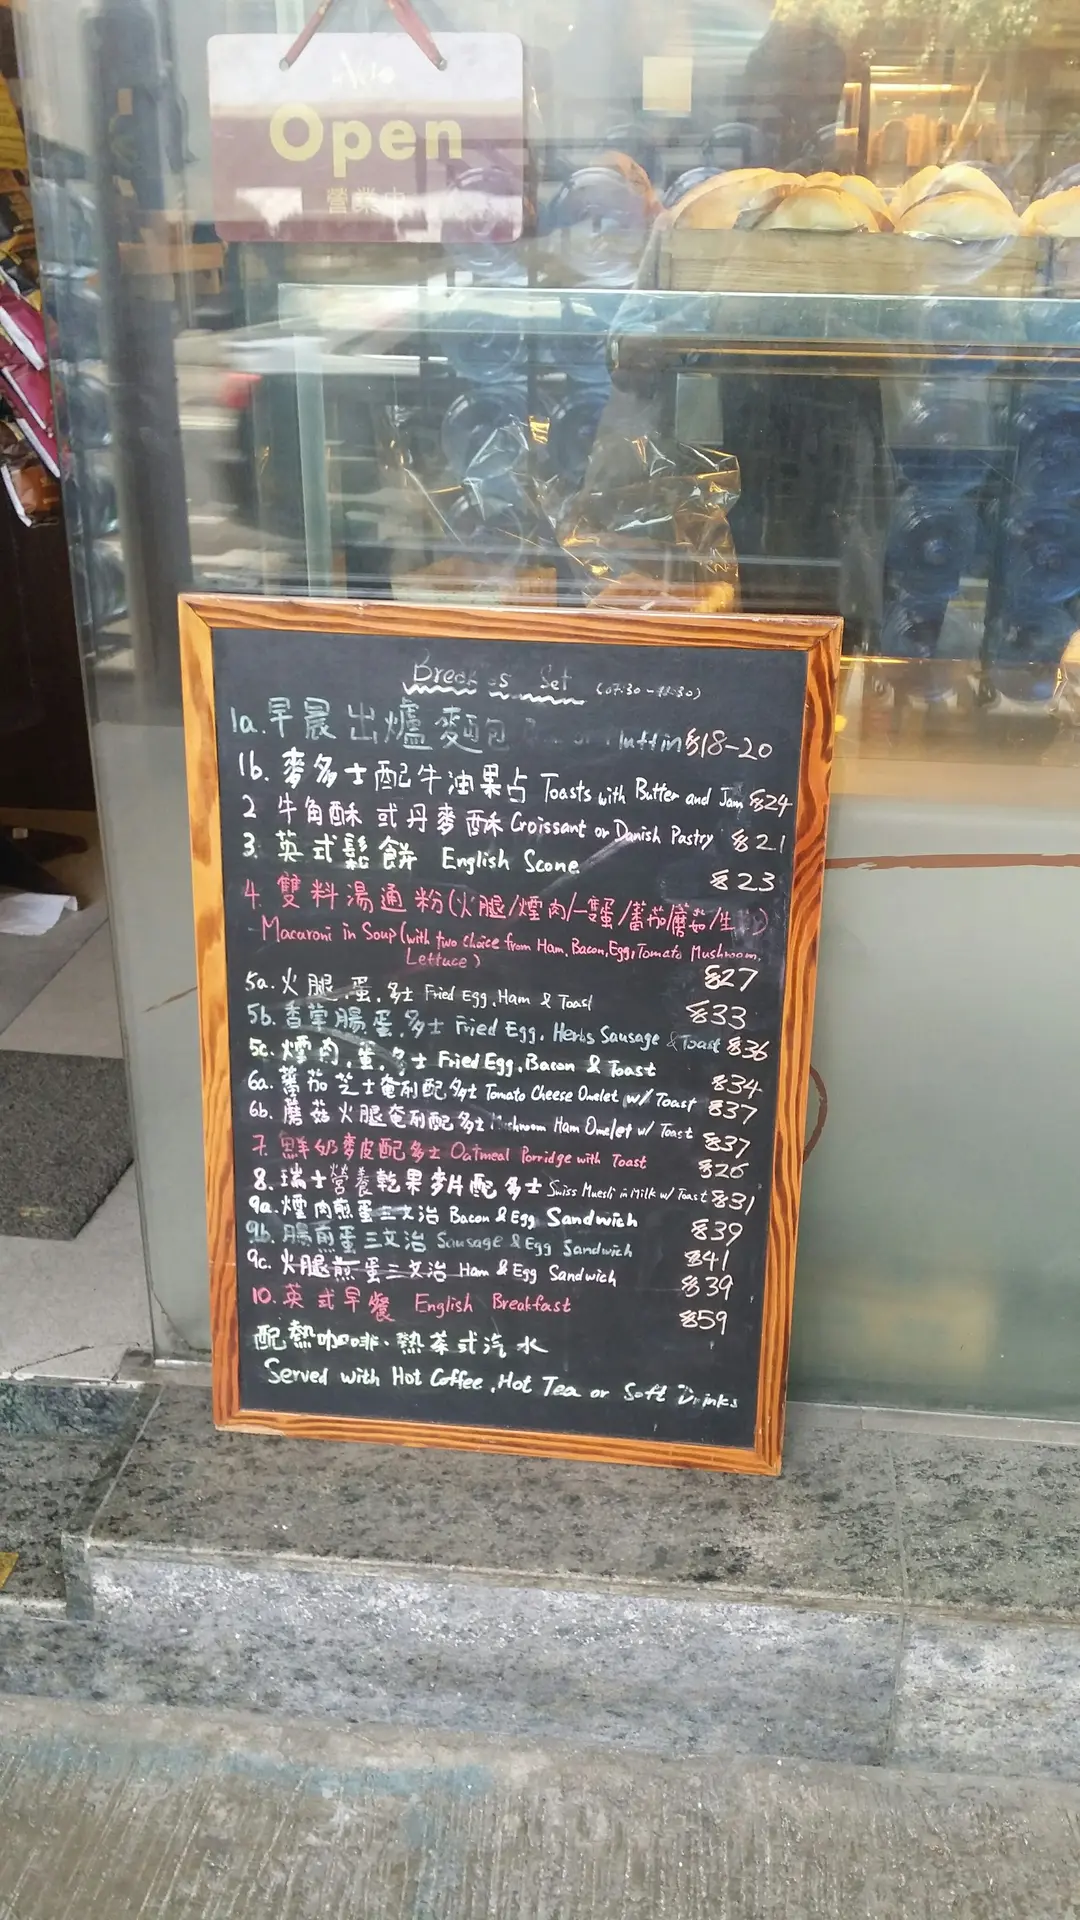 Open
營業中
Set (07:30 -
1a. 早晨出爐麵包 $18-20
1b. 麥多士配牛油果占 Toasts with Butter and Jam $24
2 牛角酥或丹麥酥 Croissant or Danish Pastry $21
3. 英式鬆餅 English Scone $23
4. 雙料湯通粉(火腿/煙肉/一隻蛋/蕃茄/蘑菇/生
Macaroni in Soup (with two choice from Ham, Bacon, Egg, Tomato Mushroom,
Lettuce) $27
5a. 火腿.蛋.多士 Fried Egg, Ham & Toast $33
5b. 香草腸蛋.多士 Fried Egg, Herbs Sausage & Toast $36
5c. 煙肉.蛋.多士 Fried Egg, Bacon & Toast $34
6a. 蕃茄芝士奄列配多士 Tomato Cheese Omelet w/ Toast $37
6b. 蘑菇火腿奄列配多士 Mushroom Ham Omelet w/ Toast $37
7. 鮮奶麥皮配多士 Oatmeal Porridge with Toast $26
8. 瑞士營養乾果麥片配多士 Swiss Muesli in Milk w/ Toast $31
9a. 煙肉煎蛋三文治 Bacon & Egg Sandwich $39
9b. 腸煎蛋三文治 Sausage & Egg Sandwich $41
9c. 火腿煎蛋三文治 Ham & Egg Sandwich $39
10. 英式早餐 English Breakfast $59
配熱咖啡.熱茶或汽水
Served with Hot Coffee, Hot Tea or Soft Drinks